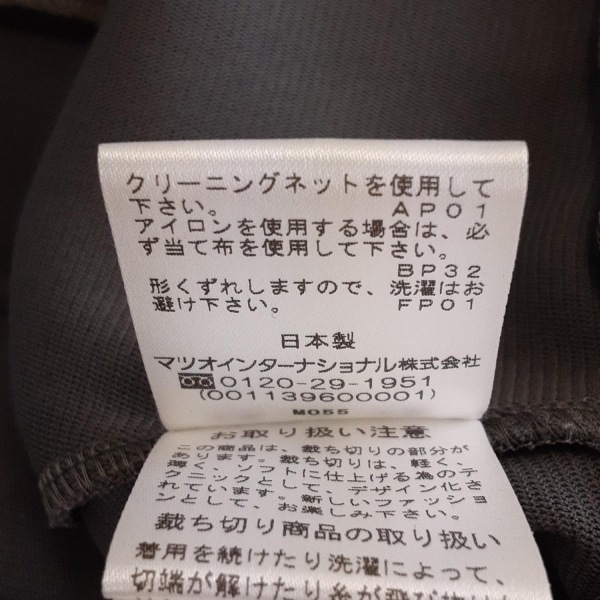 クリーニングネットを使用して
下さい。 AP01
アイロンを使用する場合は、必
ず当て布を使用して下さい。
BP32
形くずれしますので、洗濯はお
避け下さい。 FP01
日本製
マツオインターナショナル株式会社
0120-29-1951
(001139600001)
M055
お取り扱い注意
この商品は、裁ち切りの部分が
あります。裁ち切りは、軽く、
薄く、ソフトに仕上げる為のテ
クニックとして、デザイン化さ
れています。新しいファッショ
ンとして、お楽しみ下さい。
裁ち切り商品の取り扱い
着用を続けたり洗濯によって、
切端が解けたり糸が飛び抜け